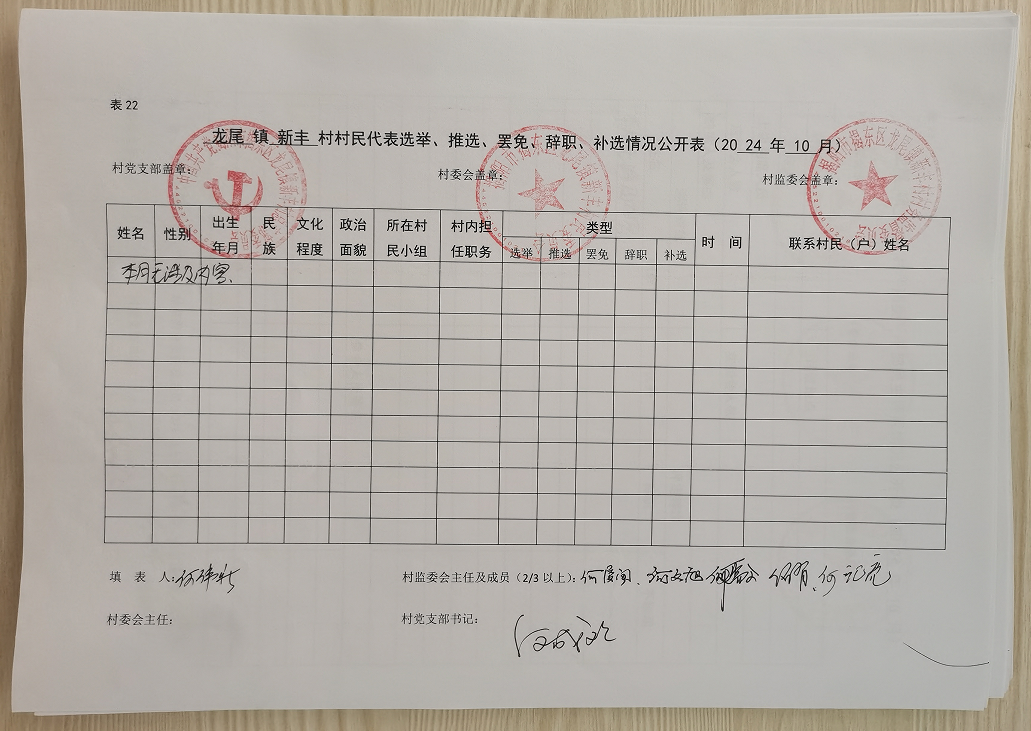 表 22
龙尾 镇 新丰 村村民代表选举、推选、罢免、辞职、补选情况公开表（20 24 年 10 月）
村党支部盖章： 村委会盖章： 村监委会盖章：
姓名 性别 出生年月 民族 文化程度 政治面貌 所在村民小组 村内担任职务 类型 时 间 联系村民（户）姓名
选举 推选 罢免 辞职 补选
本月无涉及内容.
填 表 人：
村监委会主任及成员（2/3 以上）：
村委会主任： 村党支部书记：